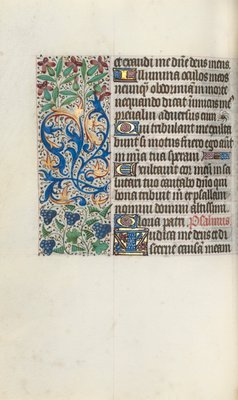 et exaudi me domine deus meus.
Illumina oculos meos
ne unquam obdormiam in morte
nequando dicat inimicus meus
prevalui adversus eum
Qui tribulant me exulta
bunt si motus fuero ego autem
in mia tua speravi
Exultavit cor meum in sa
lutari tuo cantabo domino qui
bona tribuit mihi et psallam
nomini domini altissimi
Gloria patri Psalmus
Iudica me deus et di
scerne causam meam